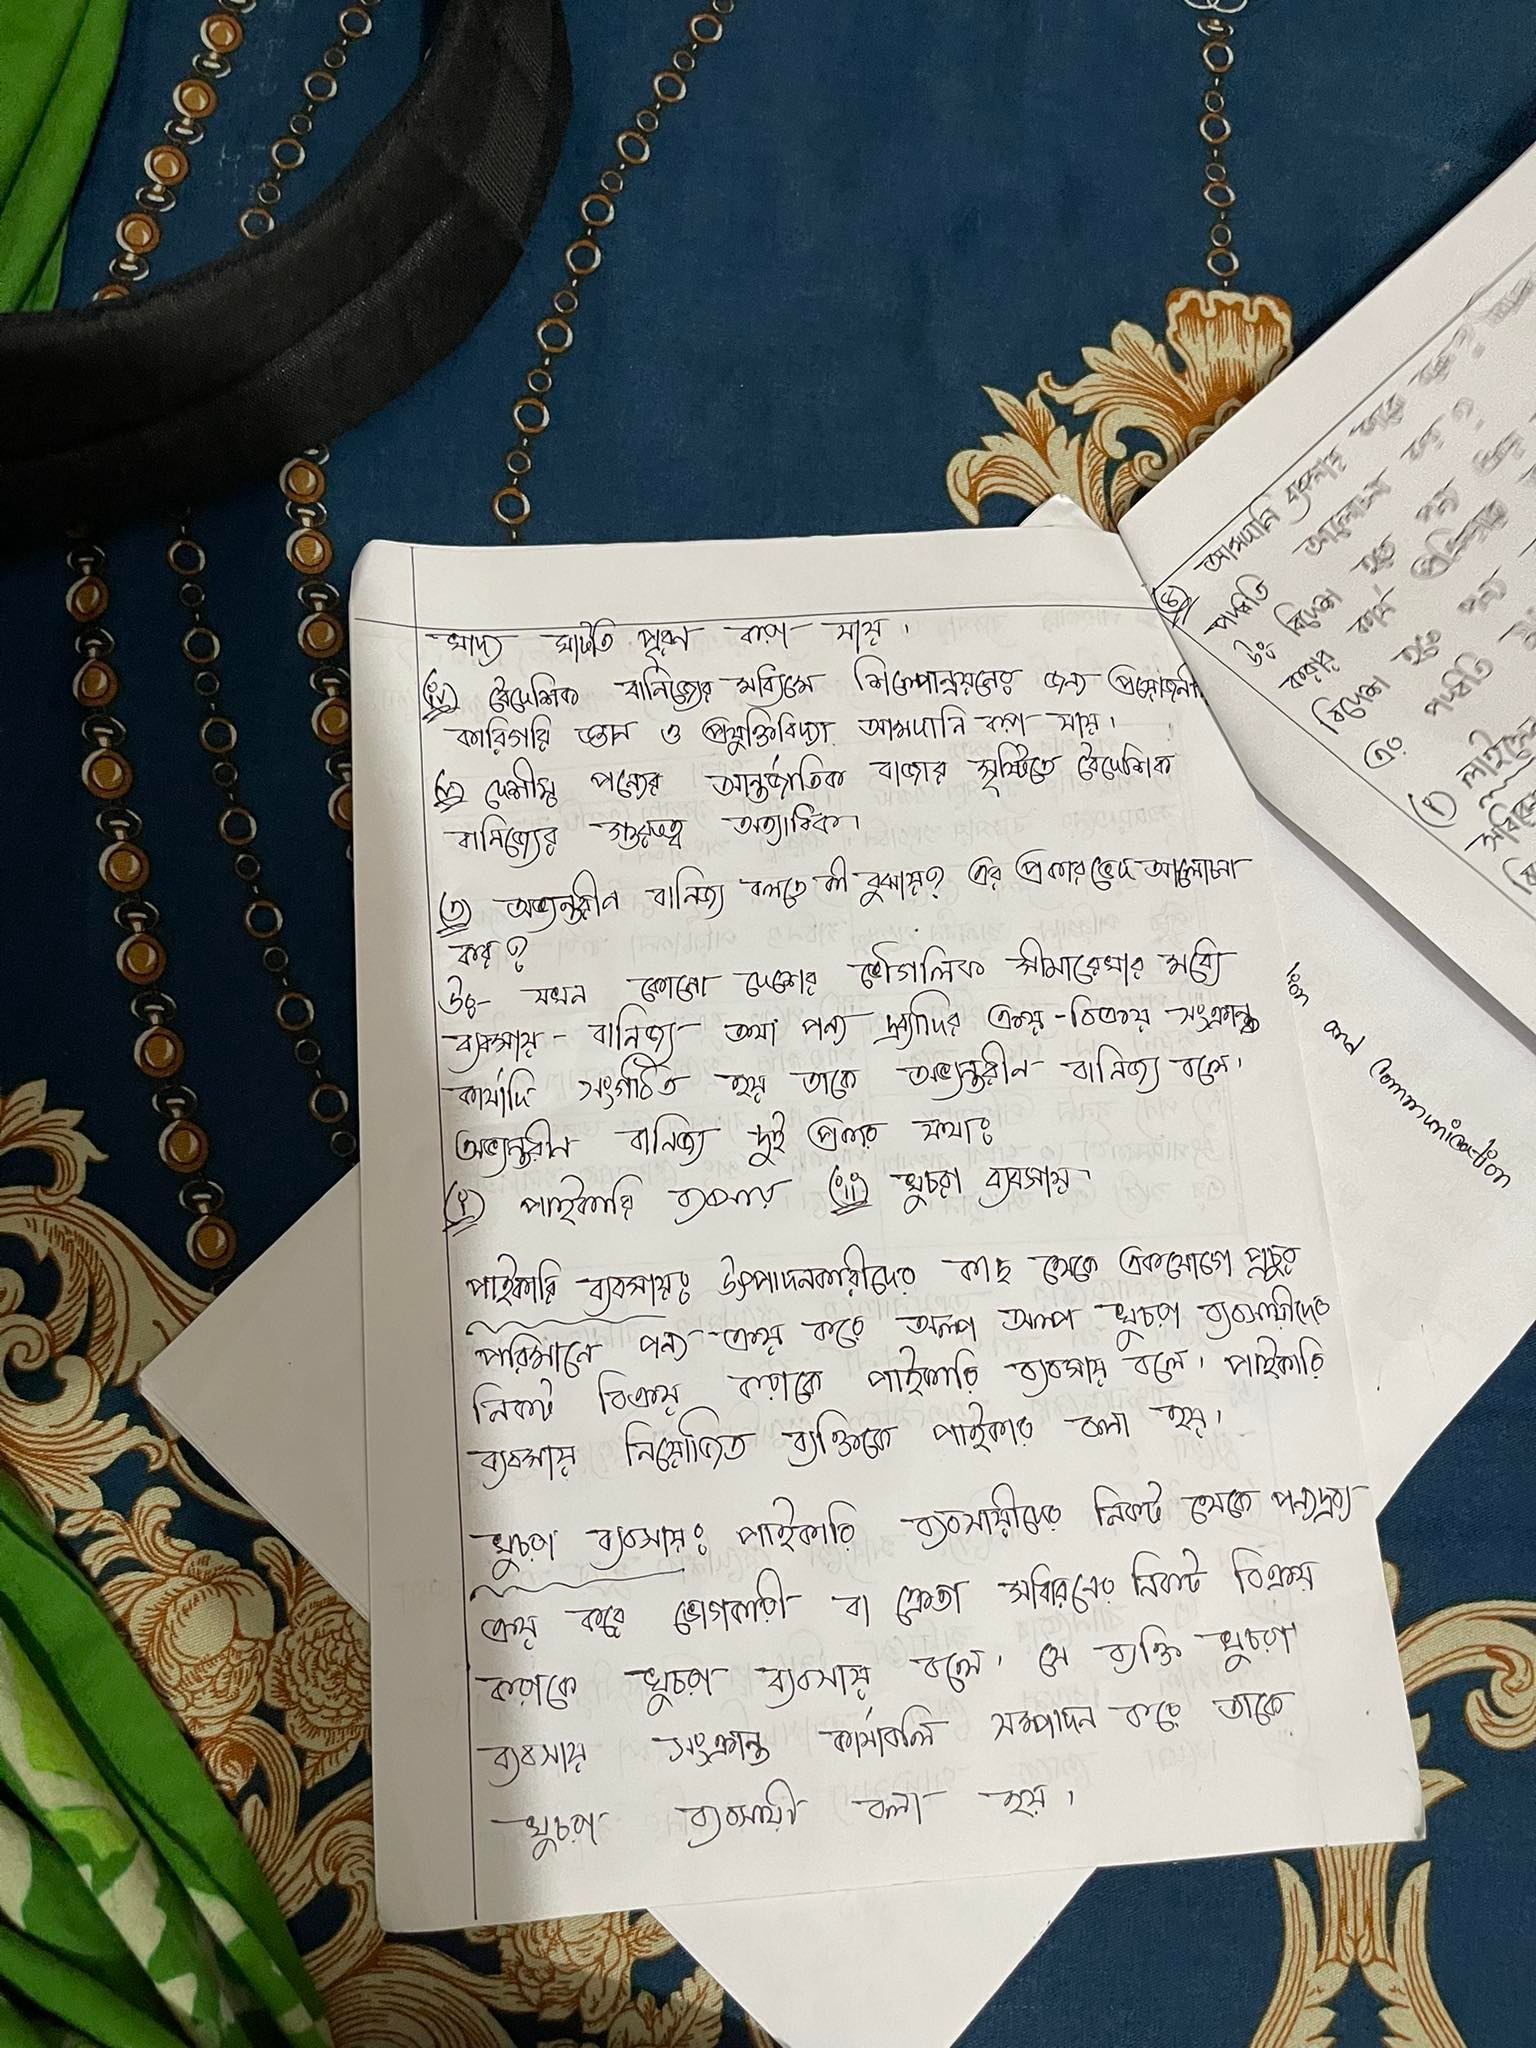 খাদ্য ঘাটতি পূরণ করা যায়।
(iv) বৈদেশিক বানিজ্যের মধ্যিমে শিল্পোন্নয়নের জন্য প্রয়োজনী
কারিগরি জ্ঞান ও প্রযুক্তিবিদ্যা আমদানি করা যায়।
(v) দেশীয় পন্যের আন্তর্জাতিক বাজার সৃষ্টিতে বৈদেশিক
বানিজ্যের গুরুত্ব অত্যাধিক।
(৩) অভ্যন্তরীন বানিজ্য বলতে কী বুঝায়? এর প্রকারভেদ আলোচনা
কর?
উঃ- যখন কোনো দেশের ভৌগলিক সীমারেখার মধ্যে
ব্যবসায় - বানিজ্য তথা পন্য দ্রব্যাদির ক্রয় - বিক্রয় সংক্রান্ত
কার্যাদি সংগঠিত হয় তাকে অভ্যন্তরীন বানিজ্য বলে।
অভ্যন্তরীন বানিজ্য দুই প্রকার যথাঃ
(i) পাইকারি ব্যবসায় (ii) খুচরা ব্যবসায়।
পাইকারি ব্যবসায়ঃ উৎপাদনকারীদের কাছ থেকে একযোগে প্রচুর
পরিমানে পন্য ক্রয় করে অল্প অল্প খুচরা ব্যবসায়ীদের
নিকট বিক্রয় করাকে পাইকারি ব্যবসায় বলে। পাইকারি
ব্যবসায় নিয়োজিত ব্যক্তিকে পাইকার বলা হয়।
খুচরা ব্যবসায়ঃ পাইকারি ব্যবসায়ীদের নিকট থেকে পন্যদ্রব্য
ক্রয় করে ভোগকারী বা ক্রেতা সাধারনের নিকট বিক্রয়
করাকে খুচরা ব্যবসায় বলে। যে ব্যক্তি খুচরা
ব্যবসায় সংক্রান্ত কার্যাবলি সম্পাদন করে তাকে
খুচরা ব্যবসায়ী বলা হয়।
(৬) আমদানি ব্যবসায় কাকে বলে?
পদ্ধতি আলোচনা কর?
উঃ বিদেশ হতে পন্য
করার কার্য
বিদেশ হতে পন্য
পদ্ধতি
(i) লাইসে
and Communication